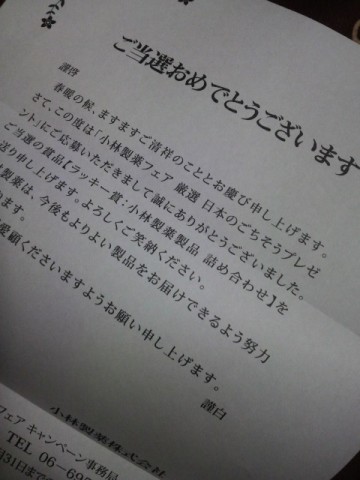 ご当選おめでとうございます
謹啓
春暖の候、ますますご清祥のこととお慶び申し上げます。
さて、この度は「小林製薬フェア 厳選 日本のごちそうプレゼ
ント」にご応募いただきまして誠にありがとうございました。
ご当選の賞品【ラッキー賞：小林製薬製品 詰め合わせ】を
送り申し上げます。よろしくご笑納ください。
製薬は、今後もよりよい製品をお届けできるよう努力
ます。
愛顧くださいますようお願い申し上げます。
謹白
小林製薬株式会社
フェア キャンペーン事務局
TEL 06-69
月31日まで